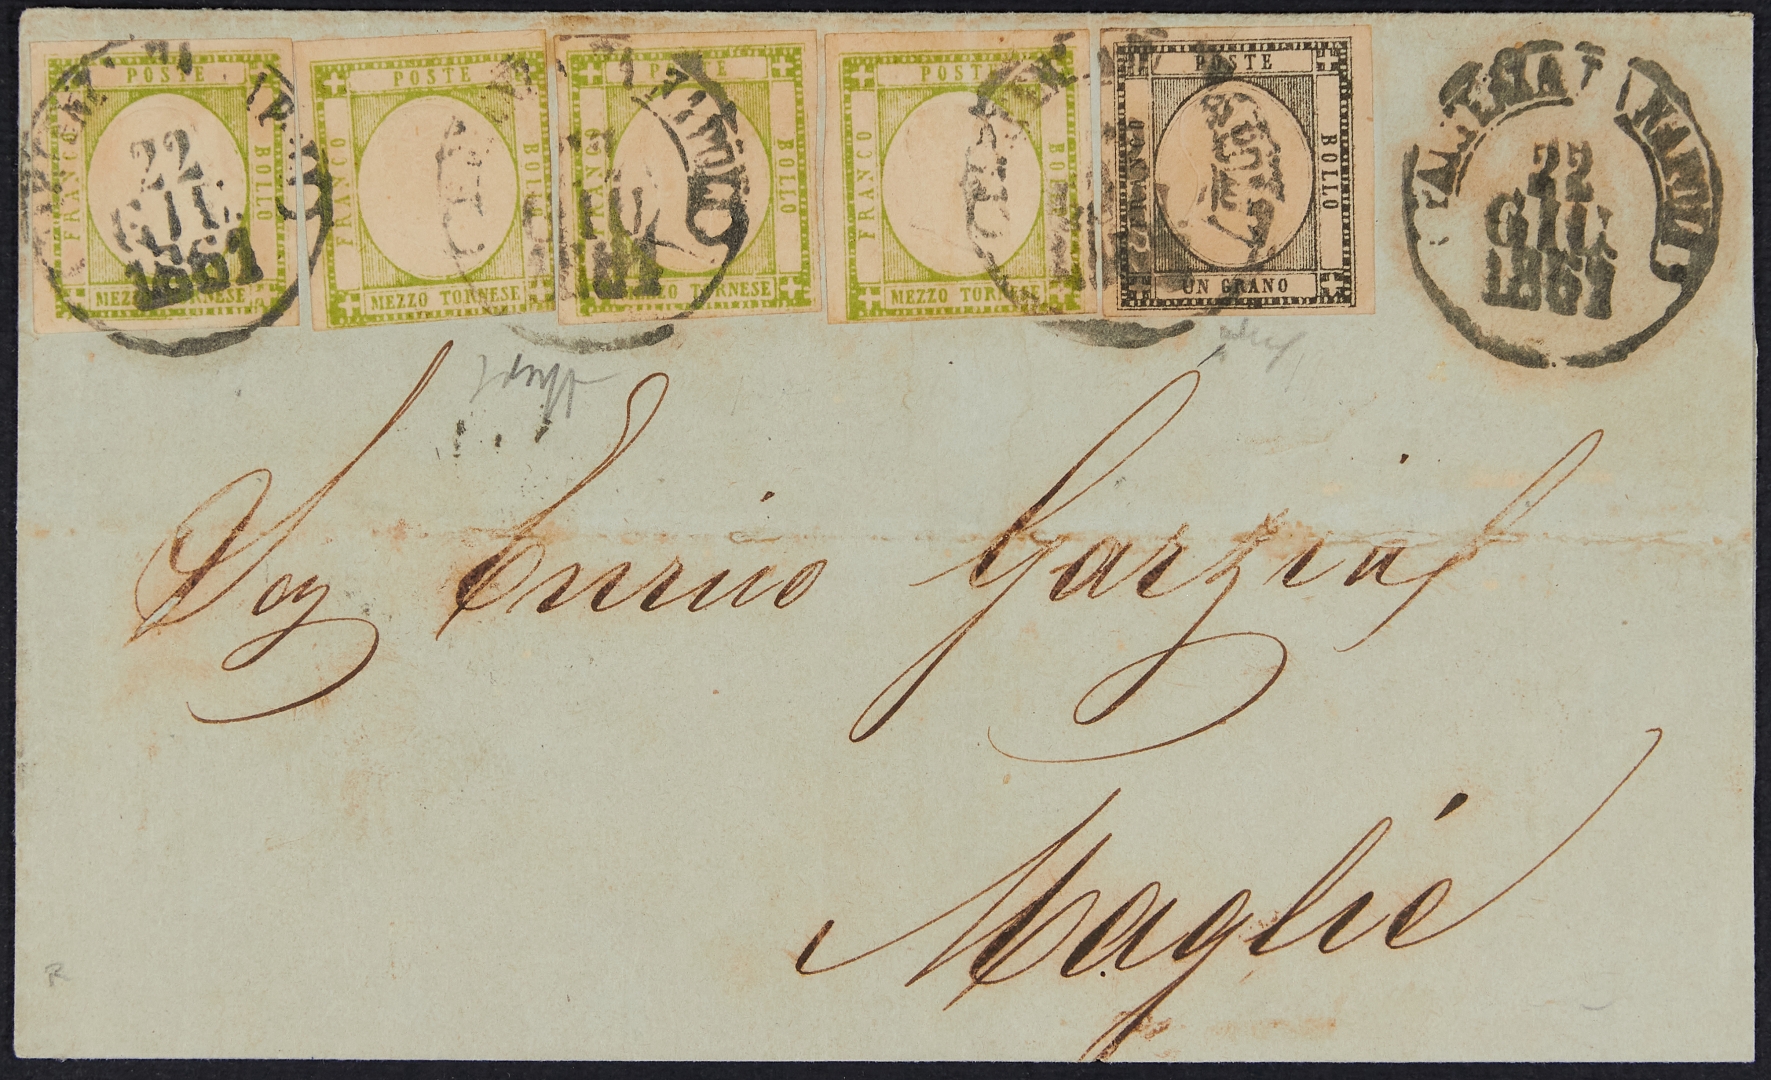 POSTE
FRANCO
BOLLO
MEZZO TORNESE
POSTE
FRANCO
BOLLO
MEZZO TORNESE
POSTE
FRANCO
BOLLO
MEZZO TORNESE
POSTE
FRANCO
BOLLO
MEZZO TORNESE
POSTE
FRANCO
BOLLO
UN GRANO
22
GIU
1861
22
GIU
1861
Enrico Garzia
Maglie